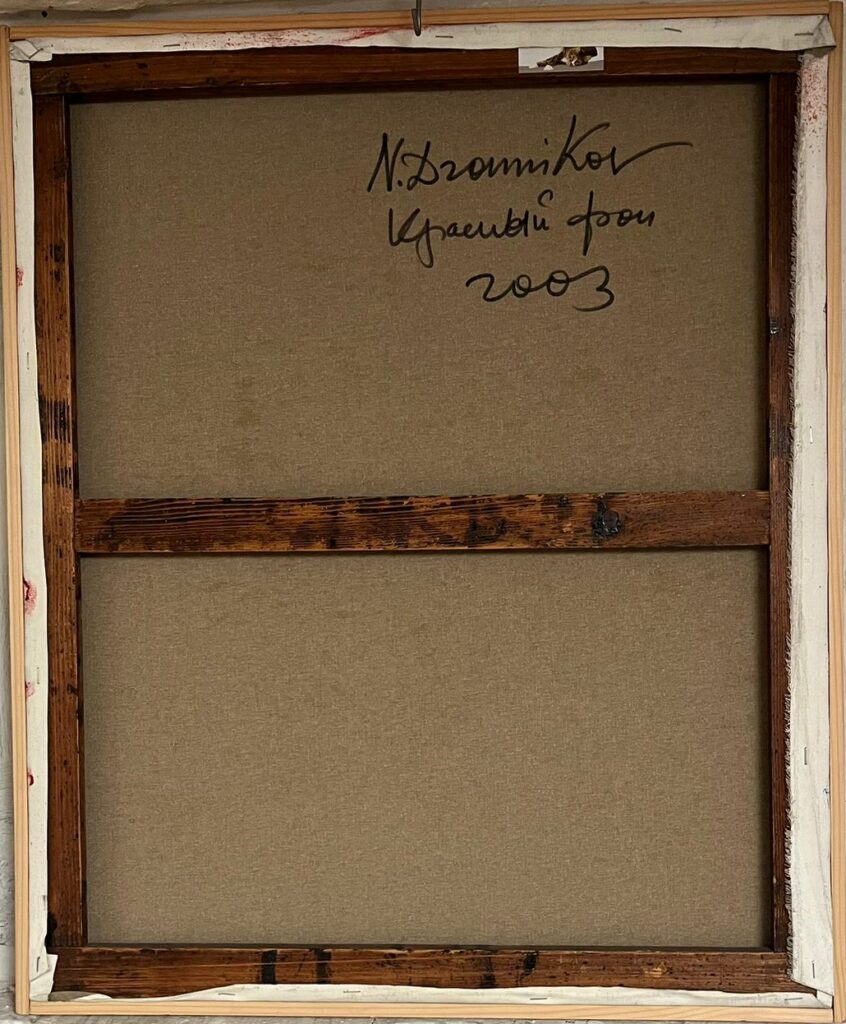 N.Dronnikov
Красный фон
2003